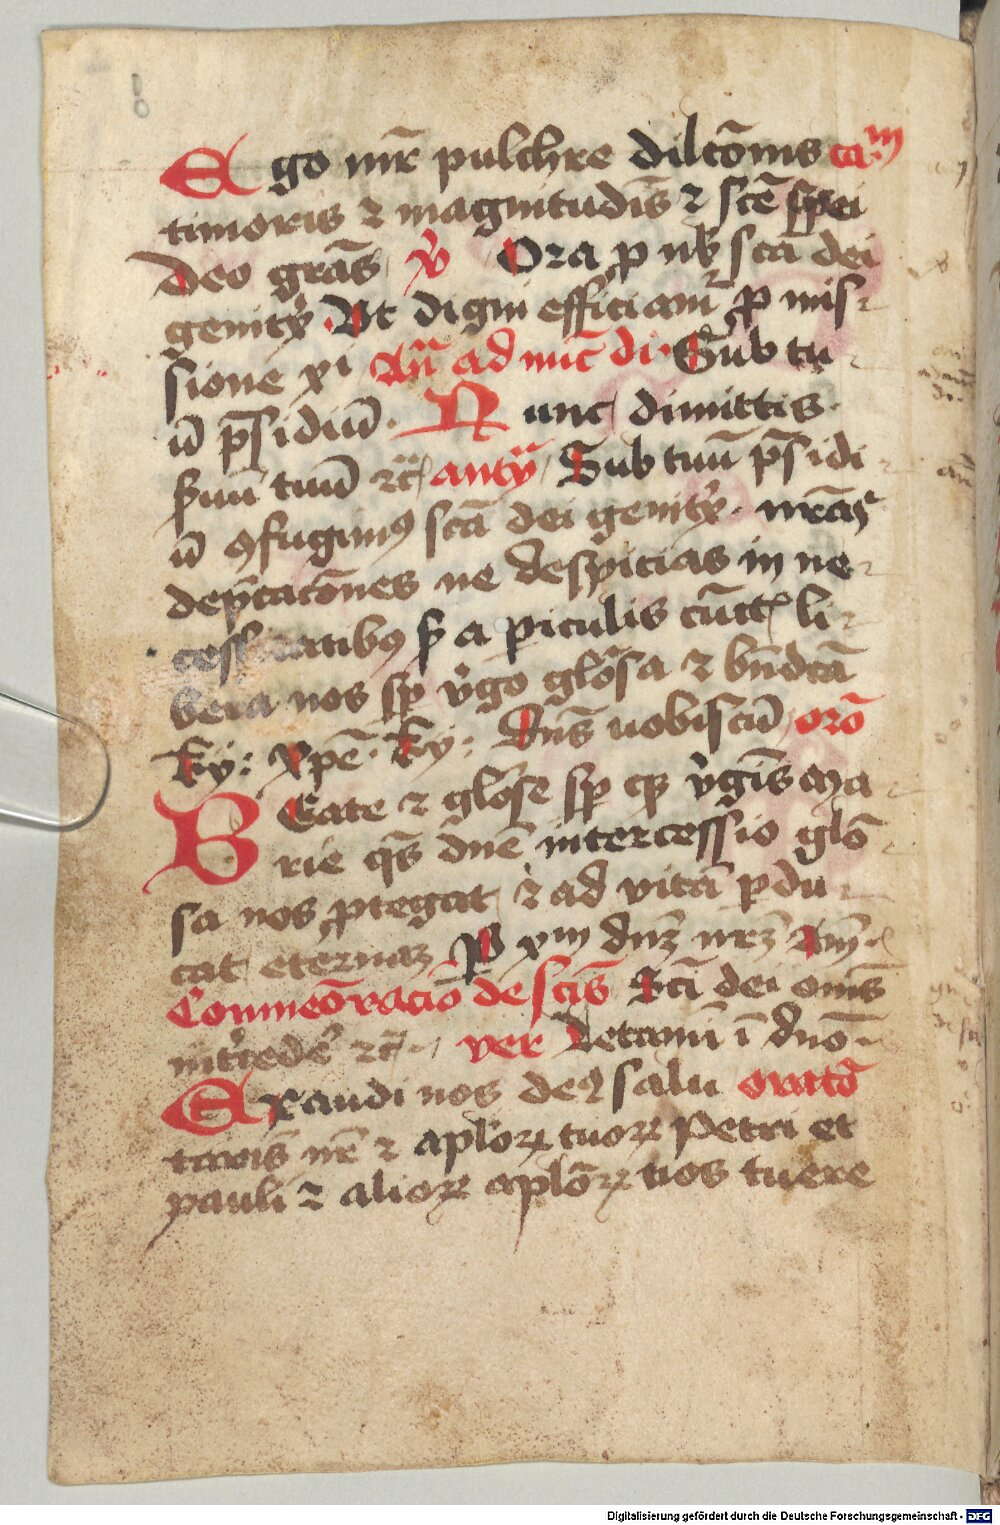 Ego mr̄ pulchre dilctōnis ca.m
timoris ⁊ magnitudīs ⁊ scē spei
Deo grās v̾ Ora ꝓ nb̄ scā dei
genitx̾ Vt digni efficiamr ꝓmis-
sione xi Añ ad nūc di. Sub tu-
ū p̄sidiū. Nunc dimittis
ẜuū tuū ⁊c̄ antyͣ Sub tuū p̄sidi-
ū ꝯfugimꝰ scā dei genitx̾. nrās
dep̄catōnes ne despicias in ne-
cessitatibꝰ ẜ a piculis cūctꝭ li-
bera nos sp̄ v̾go glōsa ⁊ bn̄dctā
ky: xpē. ky: Dn̄s uobiscū orō
Beate ⁊ glōse sp̄ qꝫ v̾gīs Ma-
rie q̄s dnē intercessio glō-
sa nos ꝓtegat ⁊ ad vitā ꝑdu-
cat eternaꝫ P xm dn̄ꝫ nrꝫ Am̄
Conmeōracio de scīs Scī dei om̄s
int̾cedē ⁊c̄ ver Letamī ī dn̄o
Exaudi nos deꝰ saluͣ oratō
taris nr̄ ⁊ aplorꝫ tuorꝫ Petri et
pauli ⁊ aliorꝫ aplōrꝫ nos tuere
Digitalisierung gefördert durch die Deutsche Forschungsgemeinschaft - DFG